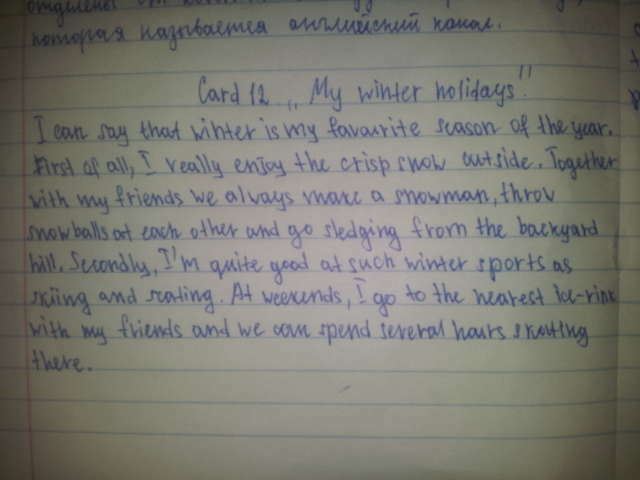 которая называется английский канал.
Card 12 „ My winter holidays."
I can say that winter is my favourite season of the year.
First of all, I really enjoy the crisp snow outside. Together
with my friends we always make a snowman, throw
snowballs at each other and go sledging from the backyard
hill. Secondly, I'm quite good at such winter sports as
skiing and scating. At weekends, I go to the nearest ice-rink
with my friends and we can spend several hours skating
there.